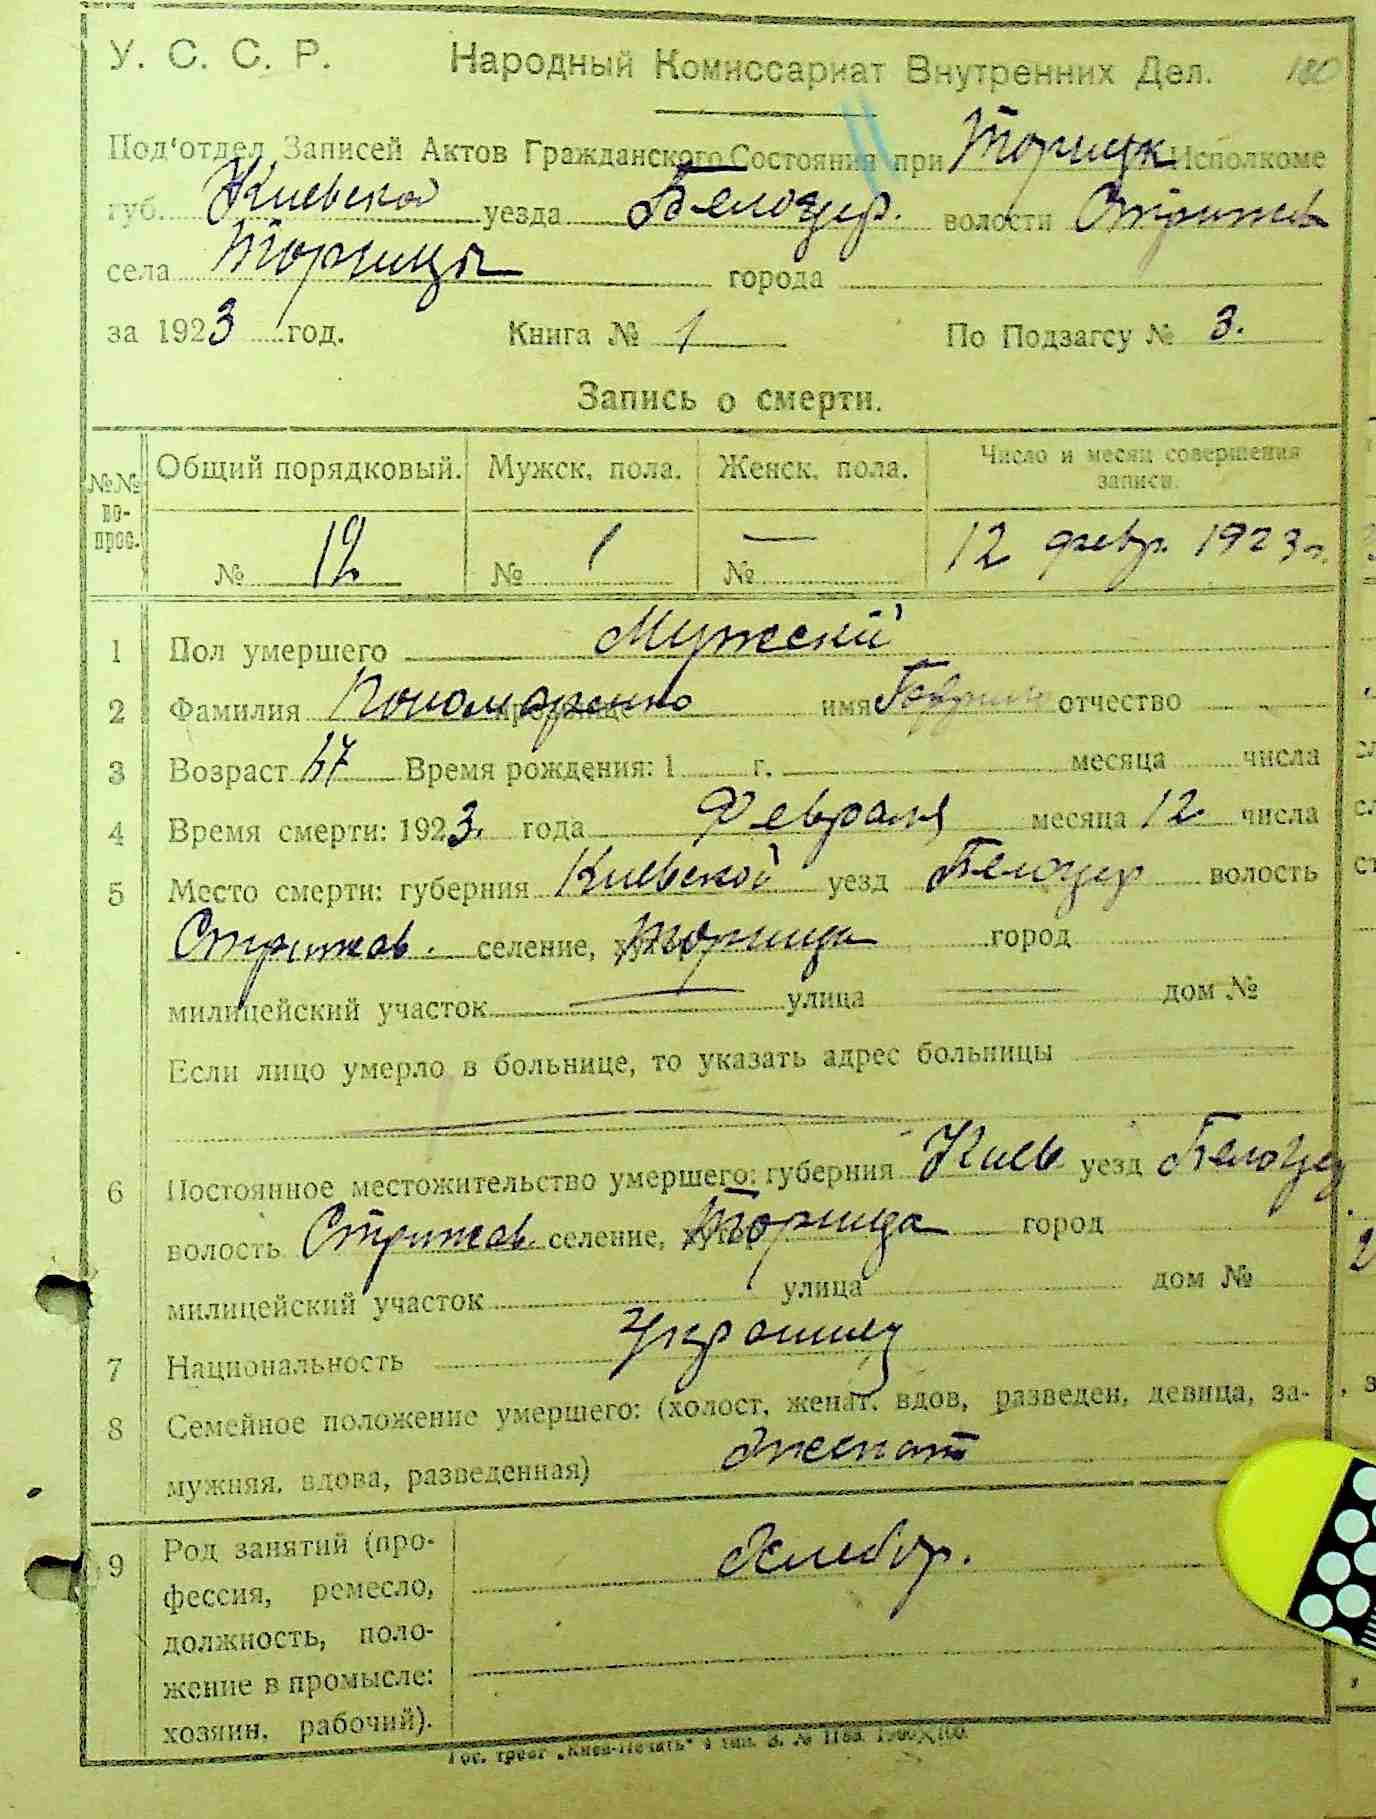 У. С. С. Р. Народный Комиссариат Внутренних Дел. 180
Под'отдел Записей Актов Гражданского Состояния при Торицк Исполкоме
губ. Киевской уезда Белоцер. волости Стрижав
села Торицы города
за 1923 год. Книга № 1 По Подзагсу № 3.
Запись о смерти.
№№ вопрос. Общий порядковый. Мужск. пола. Женск. пола. Число и месяц совершения записи.
№ 12 № 1 № — 12 февр. 1923 г.
1 Пол умершего Мужской
2 Фамилия Пономаренко имя отчество
3 Возраст 67 Время рождения: 1 г. месяца числа
4 Время смерти: 1923. года Февраля месяца 12 числа
5 Место смерти: губерния Киевской уезд Белоцер волость
Стрижав. селение, Торица город
милицейский участок улица дом №
Если лицо умерло в больнице, то указать адрес больницы
6 Постоянное местожительство умершего: губерния Киев уезд Белоцер
волость Стрижав селение, Торица город
милицейский участок улица дом №
7 Национальность Украинец
8 Семейное положение умершего: (холост, женат, вдов, разведен, девица, за-
мужняя, вдова, разведенная) женат
9 Род занятий (про-
фессия, ремесло, Хлебор.
должность, поло-
жение в промысле:
хозяин, рабочий).
Гос. трест „Киев-Печать“